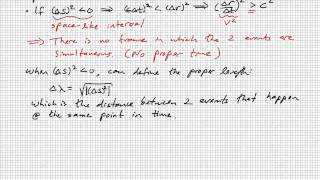 • If (Δs)² < 0 ⟹ (cΔt)² < (Δr)² ⟹ (Δr/Δt)² > c²
space-like interval
v²
⟹ There is no frame in which the 2 events are
simultaneous. (No proper time)
When (Δs)² < 0, can define the proper length
Δλ = √|(Δs)²|
which is the distance between 2 events that happen
@ the same point in time.